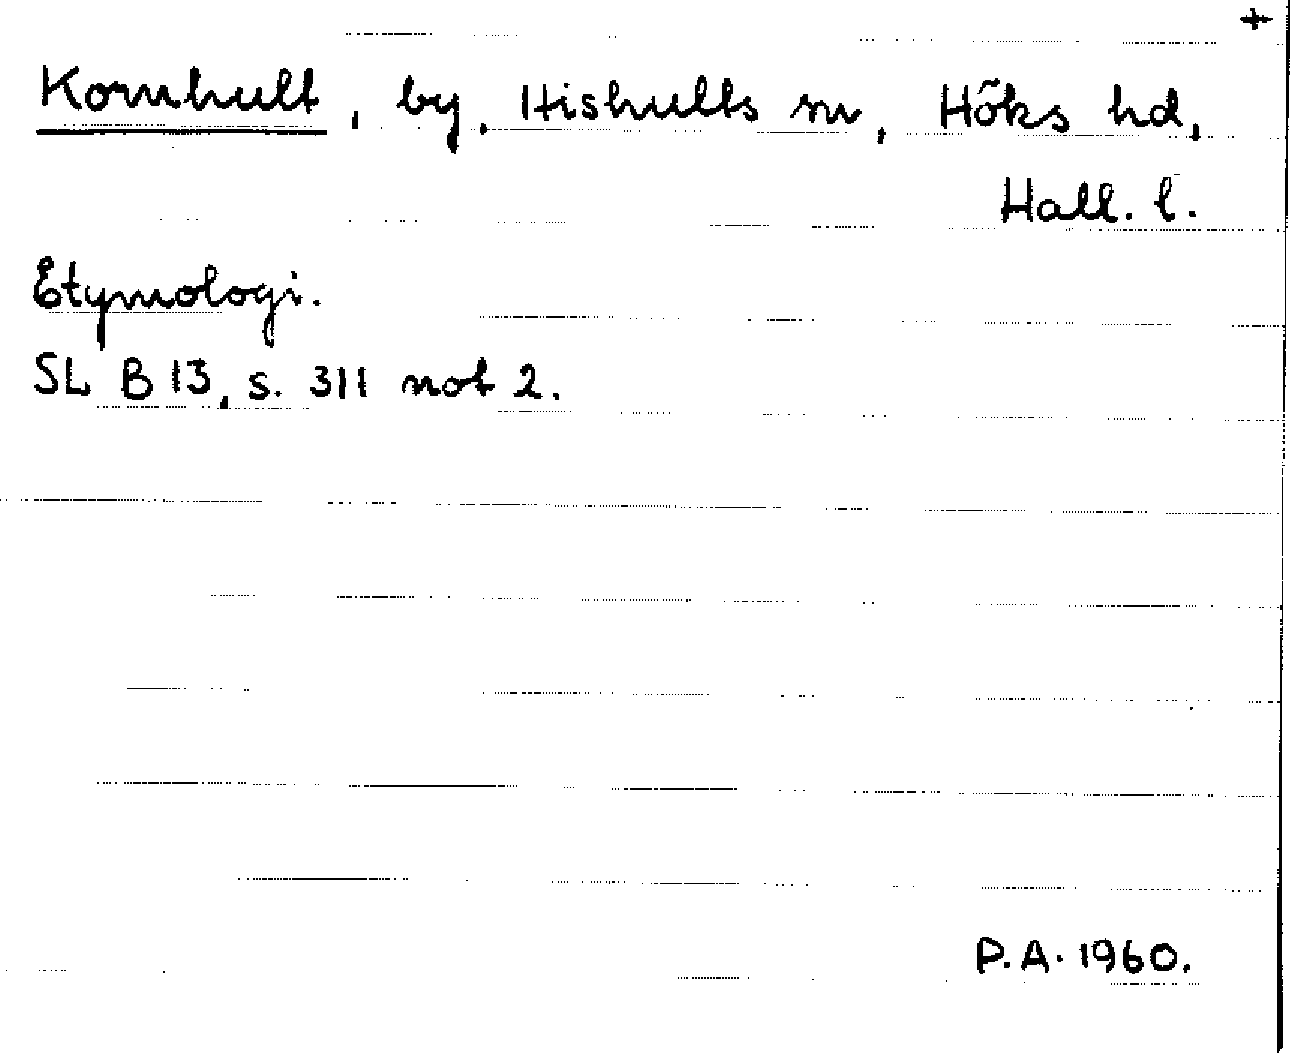 +
Kornhult, by, Hishults sn, Höks hd,
Hall. l.
Etymologi.
SL B 13, s. 311 not 2.
P.A. 1960.